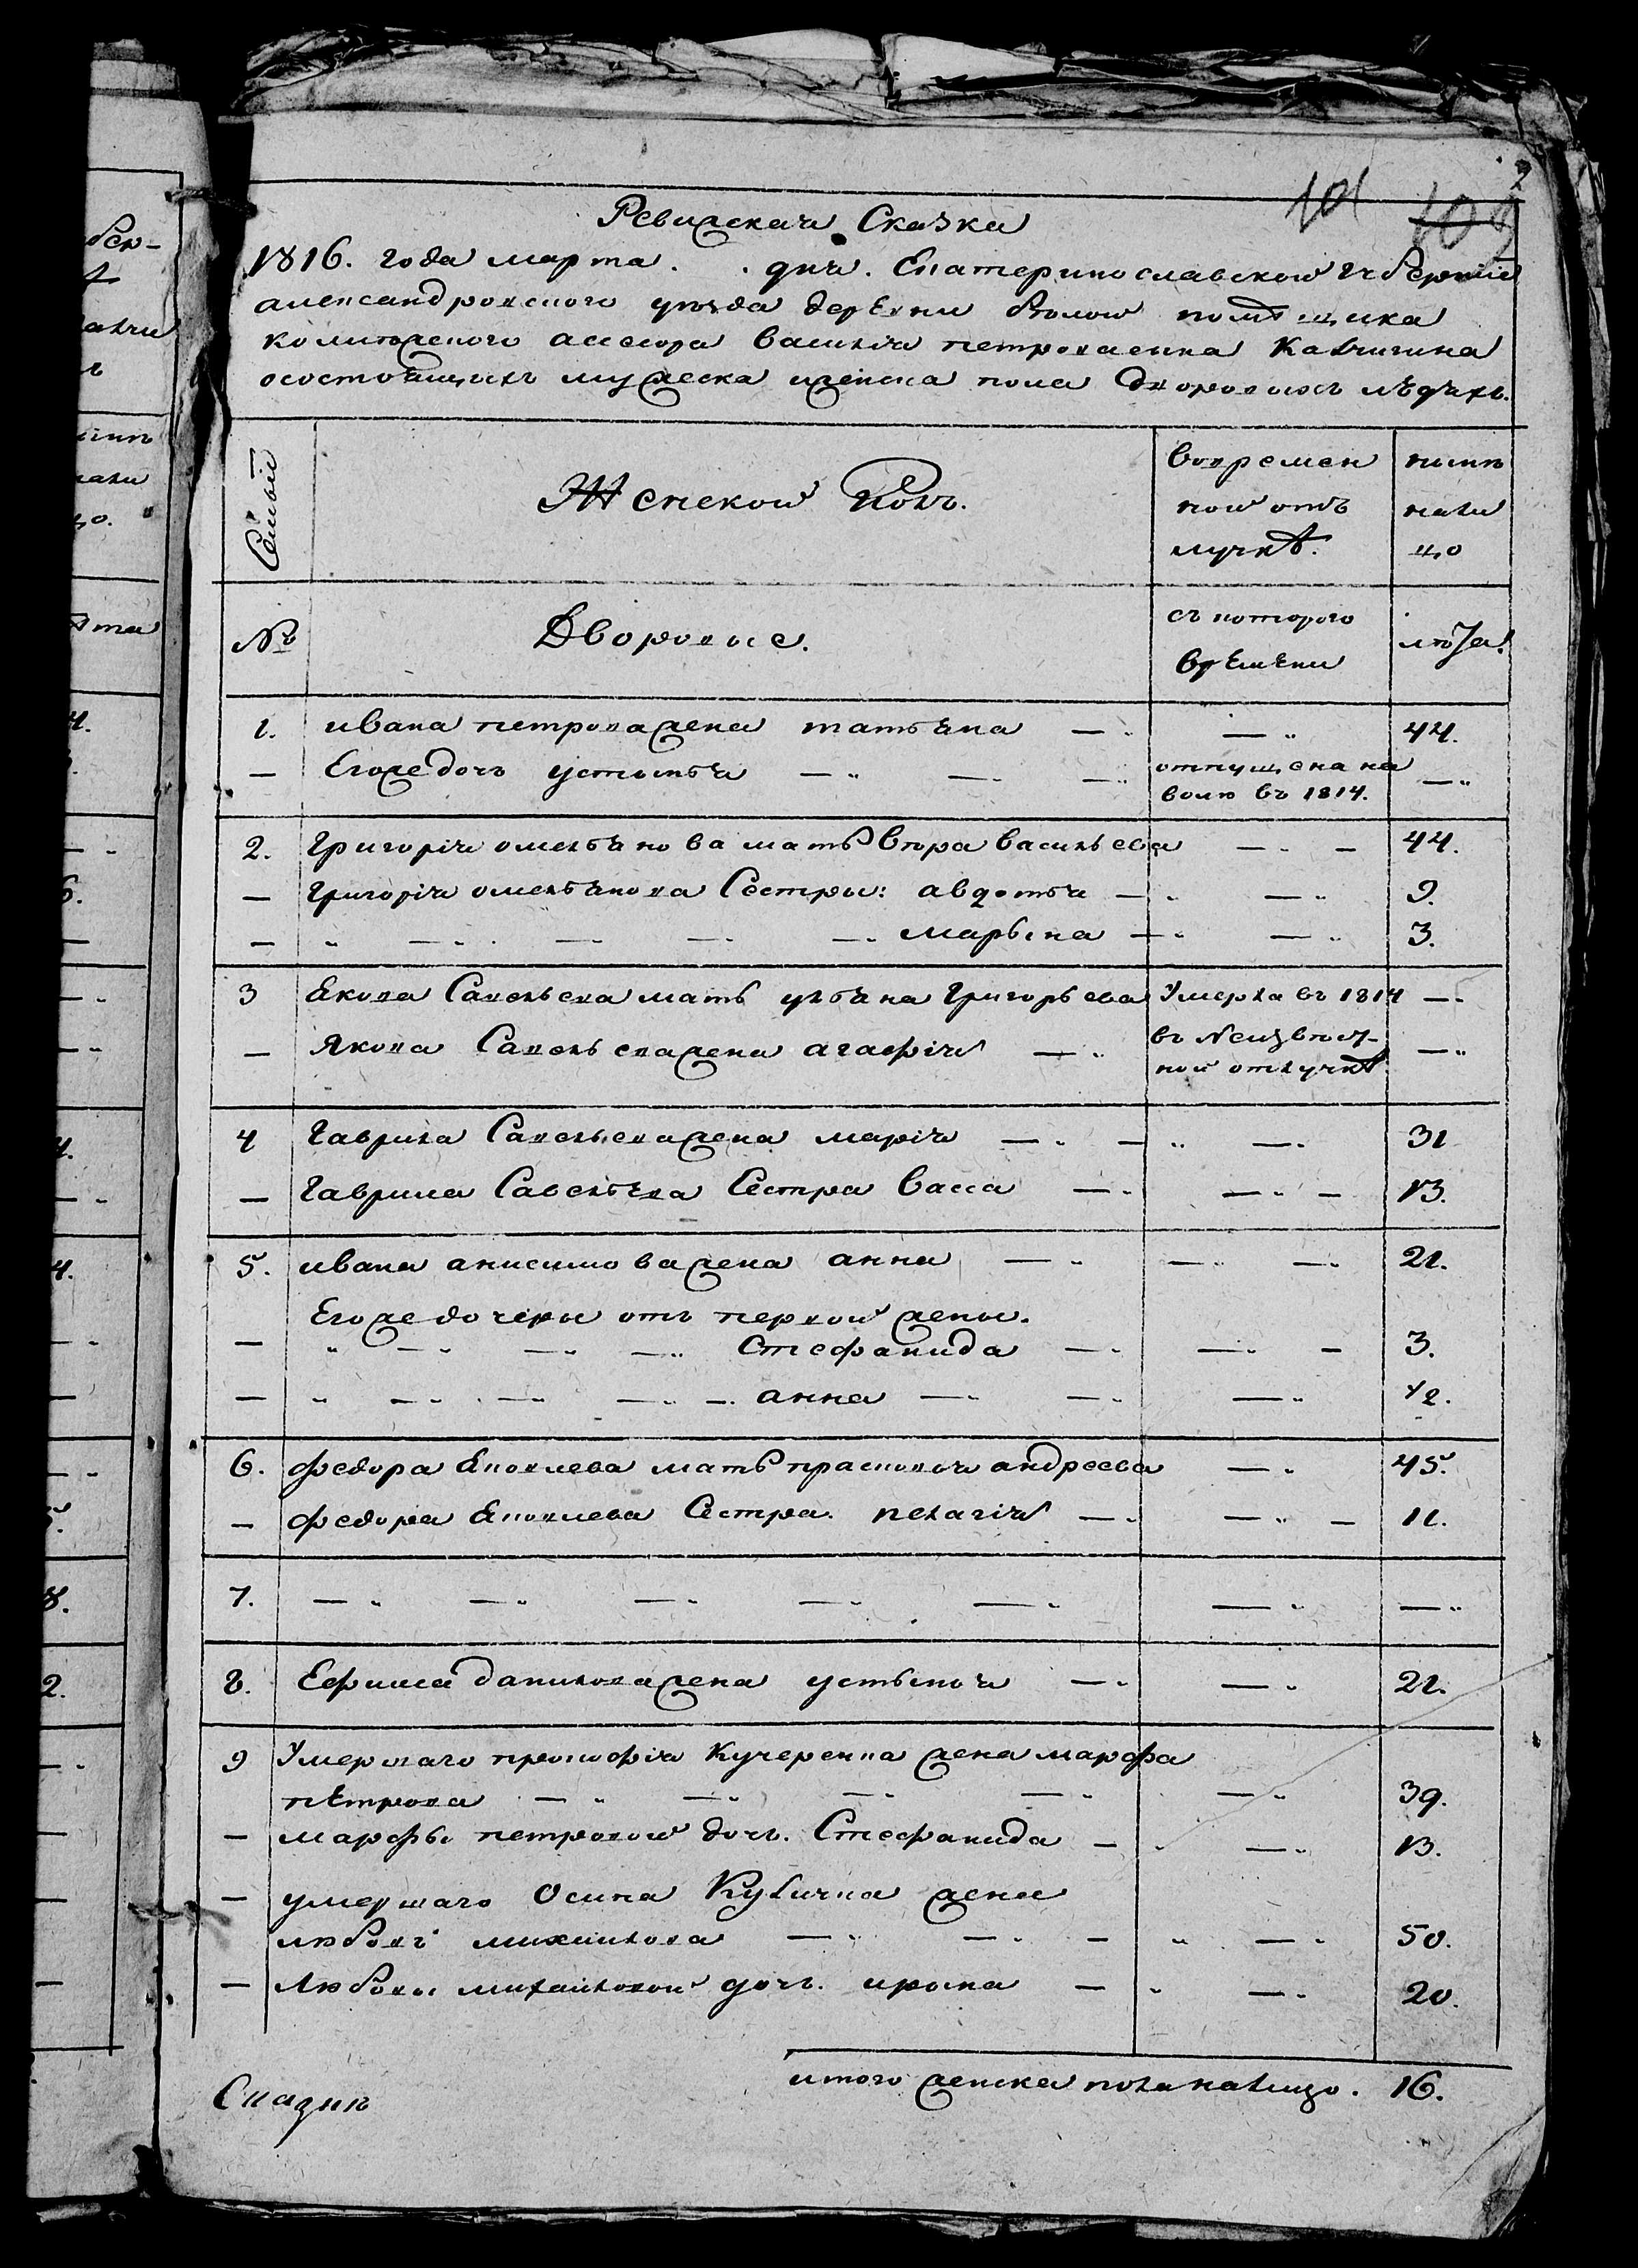 2
101 102
Ревижская Сказка
1816. года марта . . дня. Екатеринославской губернiи
александровского уѣзда деревни Белой помѣщика
колижского асесора василiя петрова сына
осостоящихъ мужеска иженска пола дворовыхъ людяхъ.
Семьiи
Женской Полъ.
вовремен
ной отъ
лучкѣ.
нынѣ
нали
цо
№
Дворовые.
съ которого
времени
лѣта.
1. ивана петрова жена татьяна — — 44.
— Егоже дочь устинья — — — отпущена на
волю въ 1814. —
2. Григорiя омельянова мать вера васильева — — 44.
— Григорiя омельянова Сестры: авдотья — — 9.
— — — — — — марьяна — — 3.
3 Якова Савельева мать ульяна Григорьева Умерла въ 1814 —
— Якова Савельева жена агафiя — въ Неизвѣст-
ной отлучкѣ —
4 Гаврила Савельева жена марiя — — — 31
— Гаврила Савельева Сестра васса — — — 13.
5. ивана анисимова жена анна — — — 21.
Егоже дочери отъ первой жены.
— — — — Стефанида — — — 3.
— — — — — анна — — — 1/2.
6. федора Яковлева мать прасковья андреева — 45.
— федора Яковлева Сестра. пелагiя — — — 11.
7. — — — — — — —
8. Ефима данилова жена устинья — — 21.
9 Умершаго прокофiя Кучеренка жена марфа
петрова — — — — — 39.
— марфы петровой дочь. Стефанида — — 13.
— умершаго Осипа жена
любовь михайлова — — — — 50.
— Любови михайловой дочь. ирина — — 20.
итого женска пола налицо. 16.